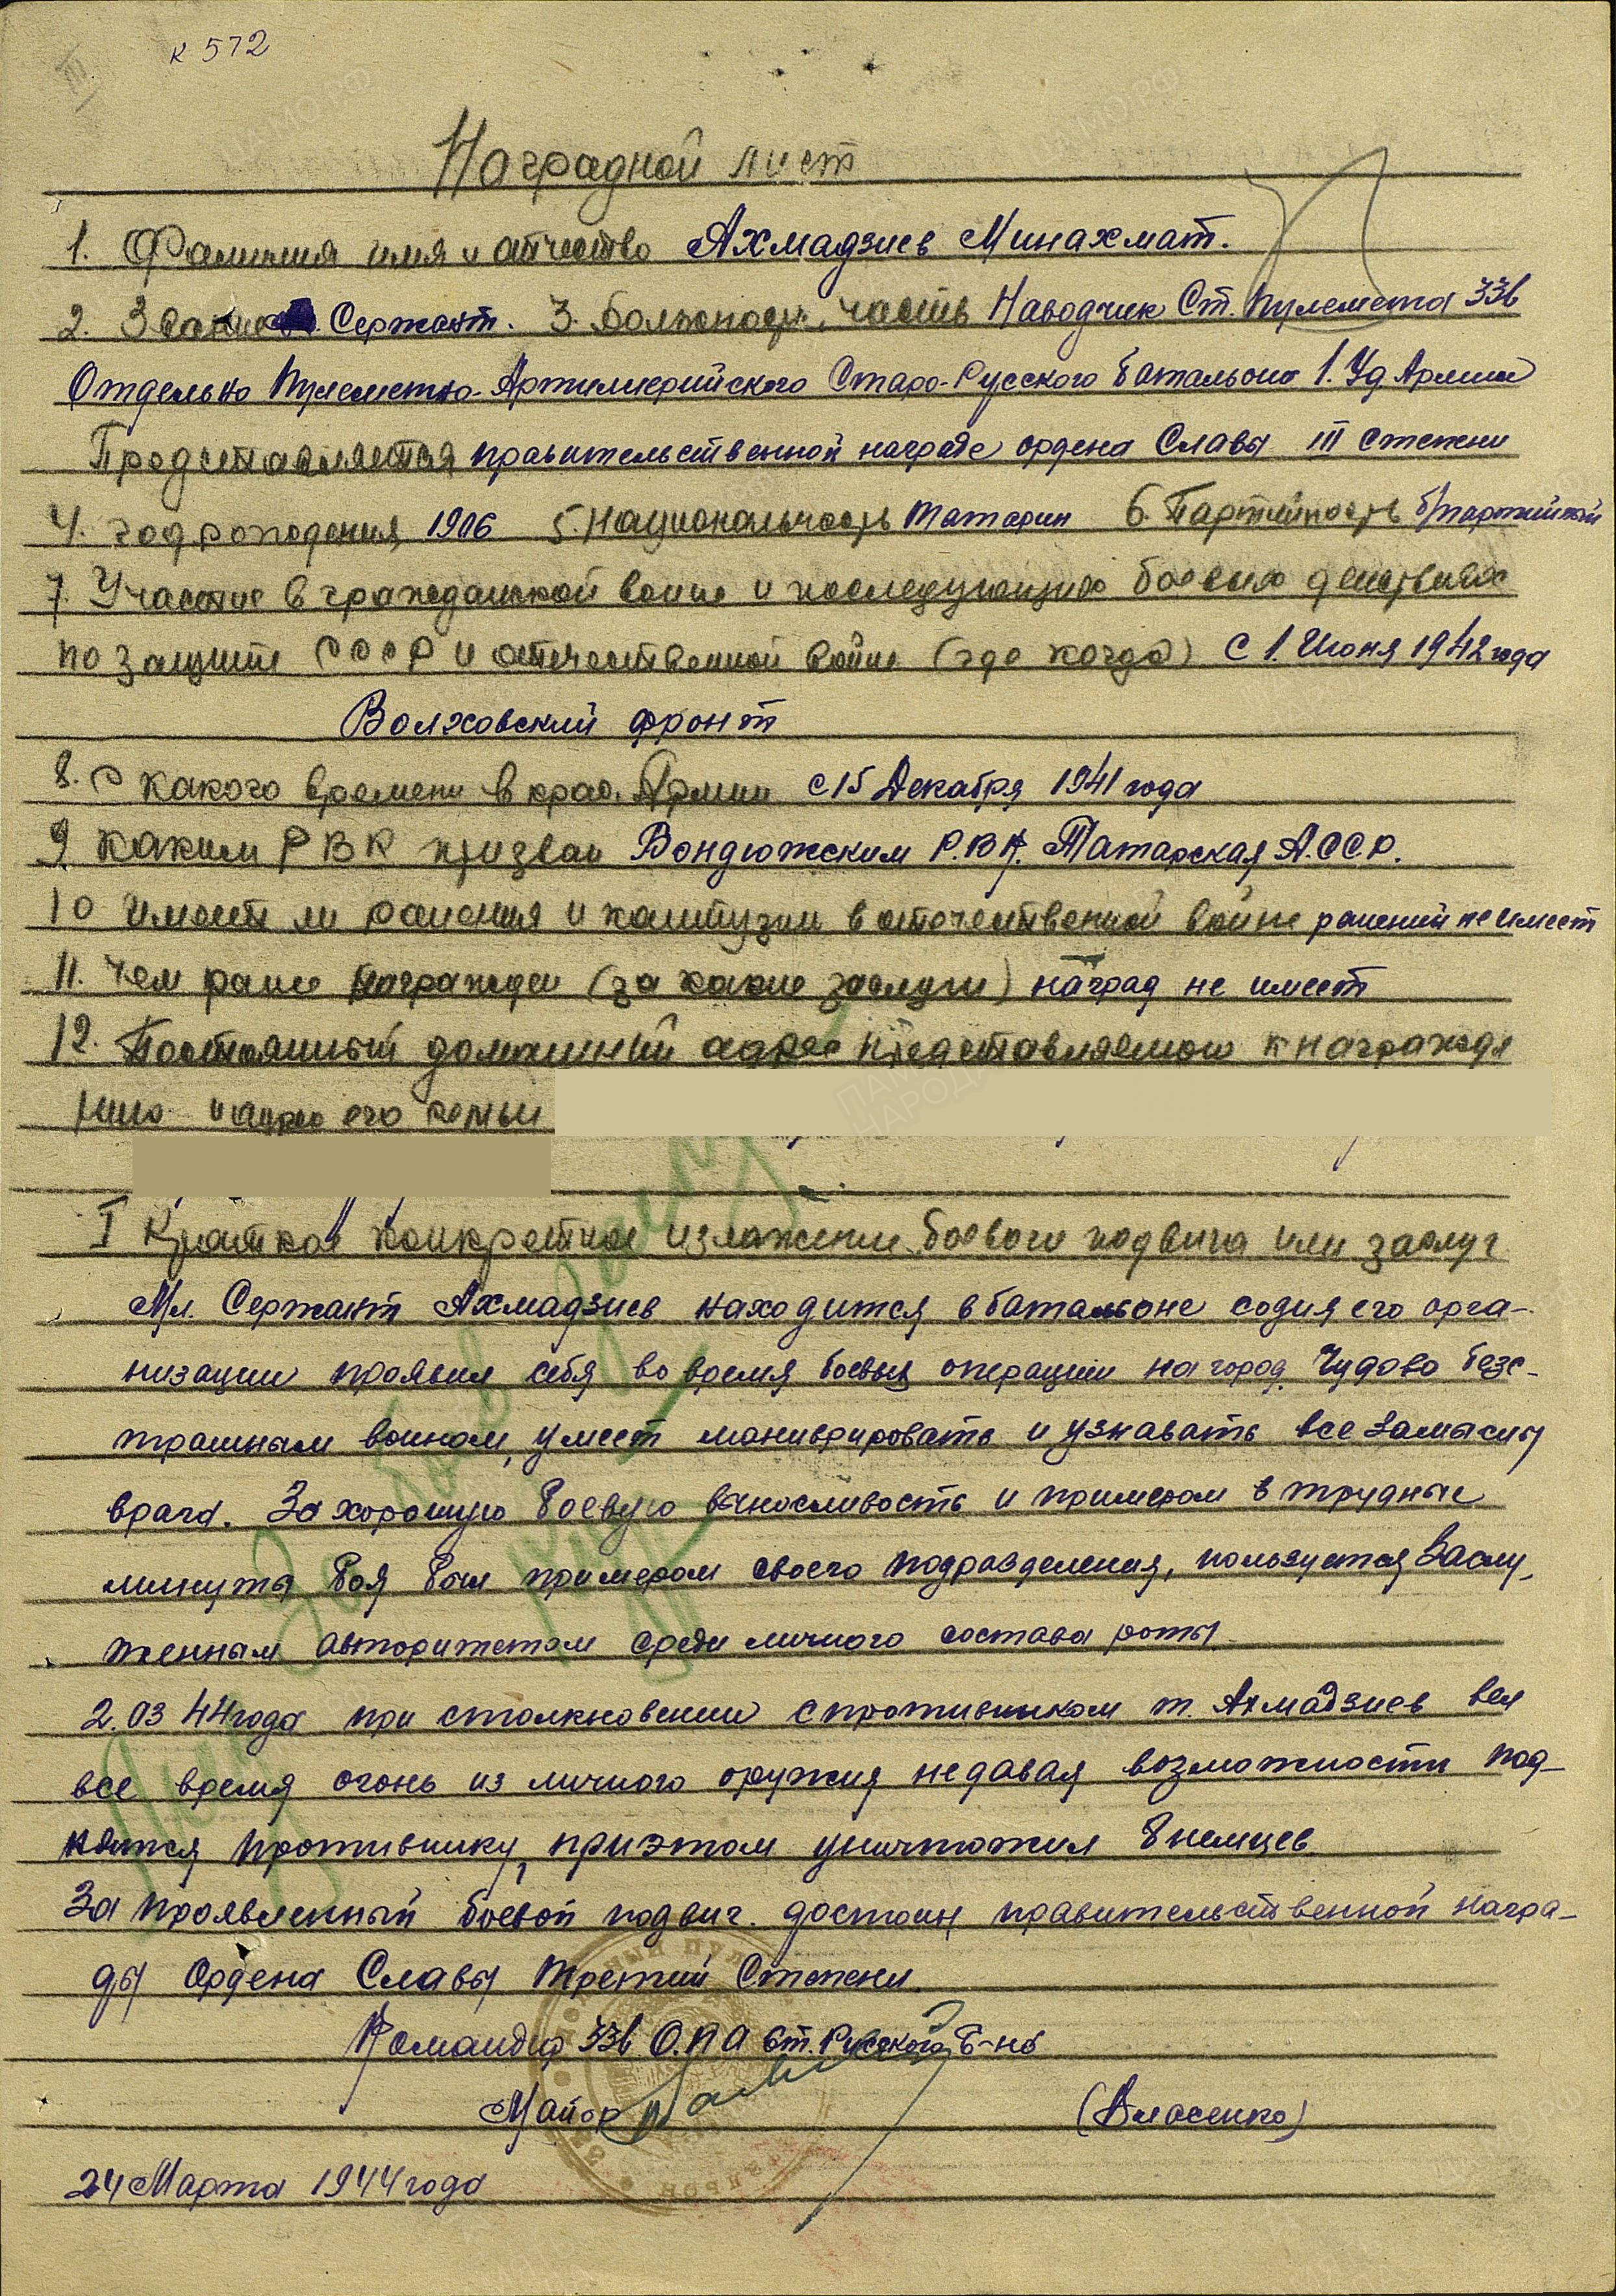 к 572
Наградной лист
1. Фамилия имя и отчество Ахмадзиев Минахмат.
2. Звание Сержант. 3. Должность, часть Наводчик Ст. пулемета 33в
Отдельно Пулеметно-Артиллерийского Старо-Русского батальона 1. Уд Армии
Представляется правительственной награде ордена Славы III степени
4. год рождения 1906 5. Национальность татарин 6. Партийность б/партийной
7. Участие в гражданской воине и последующих боевых действиях
по защите СССР и отечественной войне (где когда) с 1. Июня 1942 года
Волховский фронт
8. С какого времени в крас. Армии с 15 Декабря 1941 года
9 каким РВК призван Бондюжским Р.В.К. Татарская А.ССР.
10 имеет ли ранения и контузии в отечественной войне ранений не имеет
11. Чем ранее награжден (за какие заслуги) наград не имеет
12. Постоянный домашний адрес представляемого к награжде
нию и адрес его семьи
I Краткое конкретное изложение боевого подвига или заслуг
Мл. Сержант Ахмадзиев находится в батальоне со дня его орга-
низации проявил себя во время боевых операции на город Чудово безс-
трашным воином, умеет манивриовать и узнавать все замыслы
врага. За хорошую боевую выносливость и примером в трудные
минуты боя был примером своего подразделения, пользуется Заслу,
женным авторитетом среди личного состава роты
2.03 44 года при столкновении с противником т. Ахмадзиев вел
все время огонь из личного оружия не давая возможности под-
нятся противнику, при этом уничтожил 8 немцев
За проявленный боевой подвиг. достоин правительственной награ-
ды Ордена Славы третий Степени.
Командир 33в О.П А Ст. Русского Б-на
Майор (Власенко)
24 Марта 1944 года